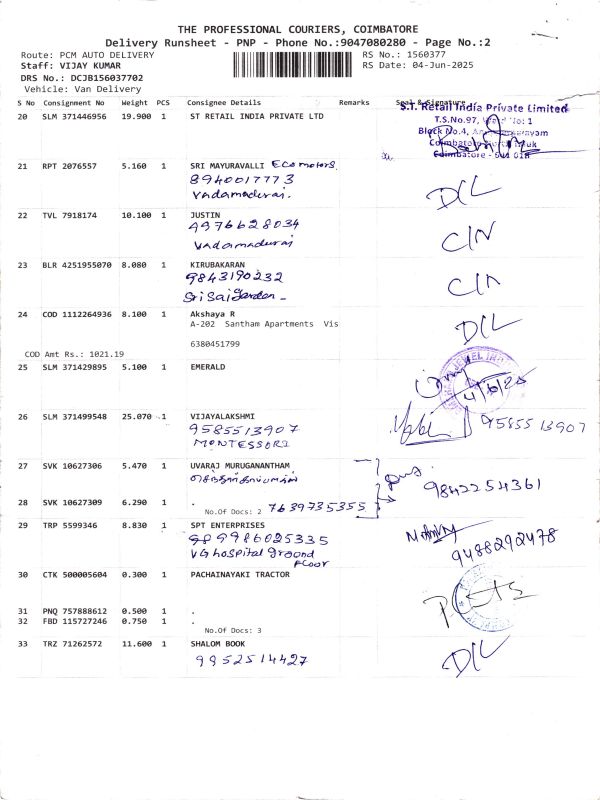 THE PROFESSIONAL COURIERS, COIMBATORE
Delivery Runsheet - PNP - Phone No.:9047080280 - Page No.:2
Route: PCM AUTO DELIVERY
RS No.: 1560377
Staff: VIJAY KUMAR
RS Date: 04-Jun-2025
DRS No.: DCJB156037702
Vehicle: Van Delivery
S No Consignment No Weight PCS Consignee Details Remarks Seal & Signature
20 SLM 371446956 19.900 1 ST RETAIL INDIA PRIVATE LTD
S.T. Retail India Private Limited
T.S.No.97, Ward No: 1
Block No.4,
Coimbatore
Coimbatore - 641 018
21 RPT 2076557 5.160 1 SRI MAYURAVALLI Eco motors.
8940017773
Vadamadurai.
D/L
22 TVL 7918174 10.100 1 JUSTIN
4976628034
Vadamadurai
C/N
23 BLR 4251955070 8.080 1 KIRUBAKARAN
9843190232
Sri Sai Garden -
C/N
24 COD 1112264936 8.100 1 Akshaya R
A-202 Santham Apartments Vis
6380451799
D/L
COD Amt Rs.: 1021.19
25 SLM 371429895 5.100 1 EMERALD
JEWEL
4/6/25
26 SLM 371499548 25.070 1 VIJAYALAKSHMI
9585513907
MONTESSORI
9585513907
27 SVK 10627306 5.470 1 UVARAJ MURUGANANTHAM
9842254361
28 SVK 10627309 6.290 1 .
No.Of Docs: 2 7639735355
29 TRP 5599346 8.830 1 SPT ENTERPRISES
989986025335
VG hospital ground
Floor
9488292478
30 CTK 500005604 0.300 1 PACHAINAYAKI TRACTOR
31 PNQ 757888612 0.500 1 .
32 FBD 115727246 0.750 1 .
No.Of Docs: 3
33 TRZ 71262572 11.600 1 SHALOM BOOK
9952514427
D/L